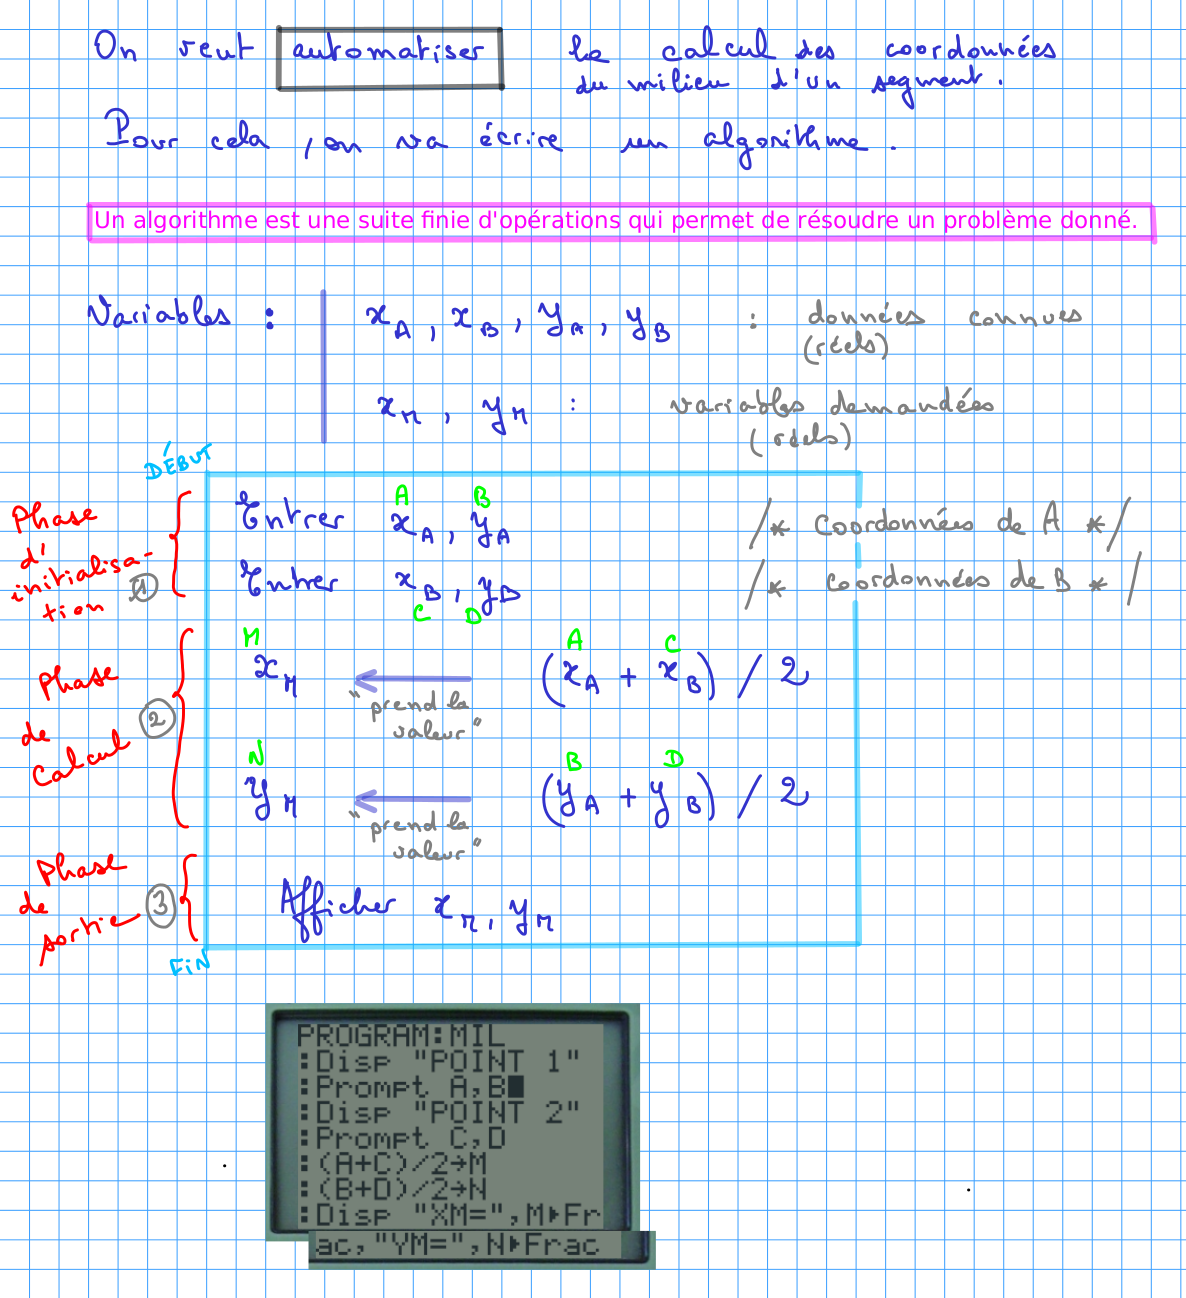 On veut automatiser le calcul des coordonnées
du milieu d'un segment.
Pour cela, on va écrire un algorithme.
Un algorithme est une suite finie d'opérations qui permet de résoudre un problème donné.
Variables : xA, xB, yA, yB : données connues
(réels)
xM, yM : variables demandées
(réels)
DÉBUT
Phase
d'
initialisa-
tion ①
A B
Entrer xA, yA /* Coordonnées de A */
Entrer xB, yB /* coordonnées de B */
C D
Phase
de
Calcul ②
M A C
xM ← (xA + xB) / 2
"prend la
valeur"
N B D
yM ← (yA + yB) / 2
"prend la
valeur"
Phase
de
sortie ③
Afficher xM, yM
FIN
PROGRAM:MIL
:Disp "POINT 1"
:Prompt A,B
:Disp "POINT 2"
:Prompt C,D
:(A+C)/2→M
:(B+D)/2→N
:Disp "XM=",M▸Fr
ac,"YM=",N▸Frac